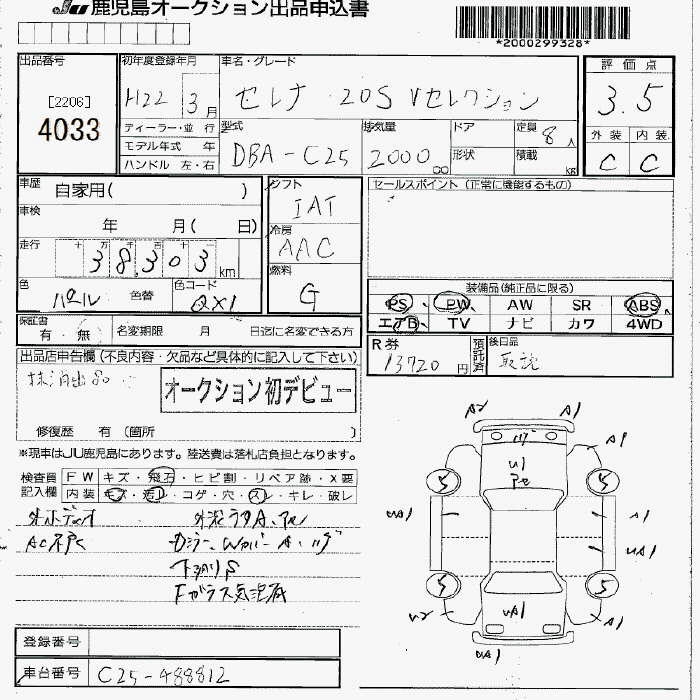 JU 鹿児島オークション出品申込書
*2000299328*
出品番号
[2206]
4033
初年度登録年月
H22 3月
車名・グレード
セレナ 20S Vセレクション
評価点
3.5
ディーラー・並行
モデル年式 年
ハンドル 左・右
型式
DBA-C25
排気量
2000 cc
ドア
形状
定員
8人
積載
kg
外装 内装
C C
車歴
自家用( )
車検
年 月( 日)
走行
十 万 千 百 十
38,303 km
色
パール
色替
色コード
QX1
シフト
IAT
冷房
AAC
燃料
G
セールスポイント (正常に機能するもの)
装備品(純正品に限る)
PS PW AW SR ABS
エアB TV ナビ カワ 4WD
保証書
有・無
名変期限 月 日迄に名変できる方
R券
13720円
預託済
後日品
取説
出品店申告欄(不良内容・欠品など具体的に記入して下さい)
抹消出品
オークション初デビュー
修復歴 有(箇所 )
※現車はJU鹿児島にあります。陸送費は落札店負担となります。
検査員記入欄
FW キズ・飛石・ヒビ割・リペア跡・X要
内装 キズ・汚レ・コゲ・穴・スレ・キレ・破レ
外ボディオ
AC不良
下廻りS
Fガラス気泡有
A2 A1
A1
U1
5 5
UA1 A1
UA1
5 5
U2 UA1 A1
UA1
登録番号
車台番号 C25-488812